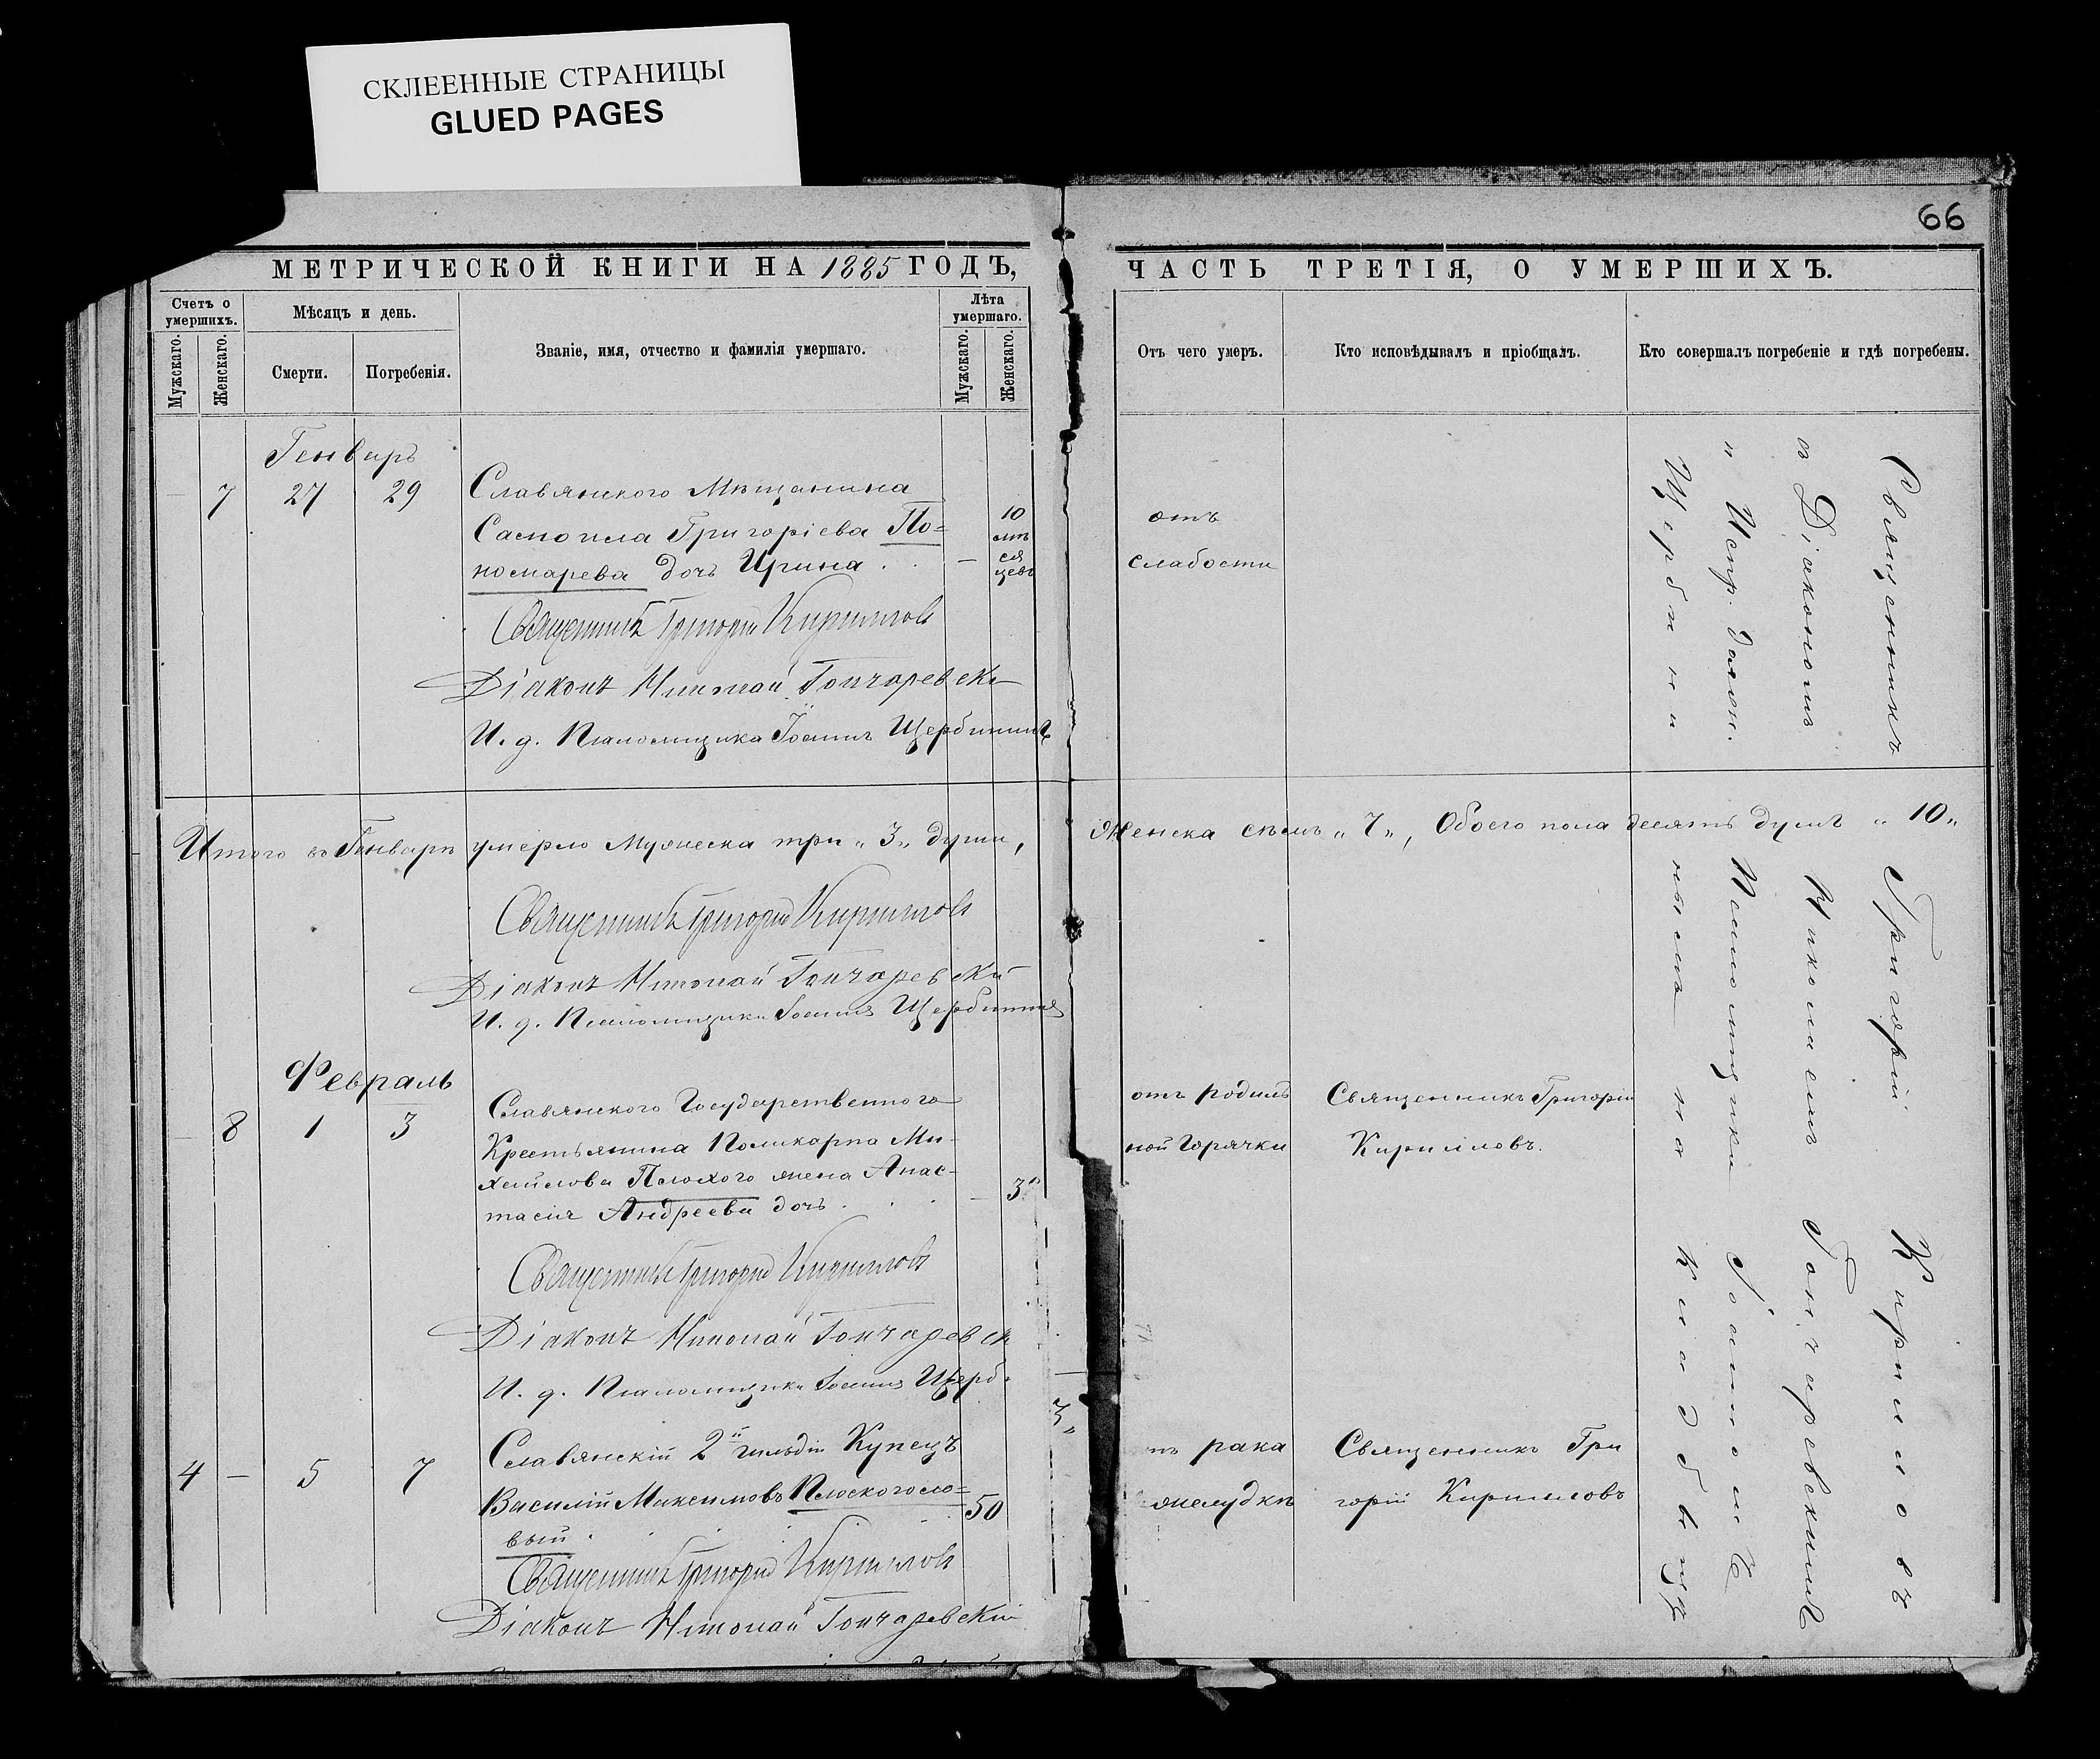 СКЛЕЕННЫЕ СТРАНИЦЫ
GLUED PAGES
66
МЕТРИЧЕСКОЙ КНИГИ НА 1885 ГОДЪ,
ЧАСТЬ ТРЕТІЯ, О УМЕРШИХЪ.
Счетъ о умершихъ.
Мужскаго.
Женскаго.
Мѣсяцъ и день.
Смерти.
Погребенія.
Званіе, имя, отчество и фамилія умершаго.
Лѣта умершаго.
Мужскаго.
Женскаго.
Отъ чего умеръ.
Кто исповѣдывалъ и пріобщалъ.
Кто совершалъ погребеніе и гдѣ погребены.
Генварь
7 27 29 Славянского Мѣщанина
Григоріева По=
номарева дочь Ирина
10
мѣ
ся
цевъ
отъ
слабости
Священникъ Григорій Кирилловъ
Діаконъ Николай Гончаревскі
И. д. Псаломщика Іоаннъ Щербининъ
Итого въ Генварѣ умерло Мужеска три „3„ души,
Женска семь „7„, Обоего пола десять душъ „10„
Священникъ Григорій Кирилловъ
Діаконъ Николай Гончаревскій
И. д. Псаломщика Іоаннъ Щербининъ
Февраль
8 1 3 Славянского Государственного
Крестьянина Поликарпа Ми-
хайлова Плохого жена Анас-
тасія Андреева дочь
отъ родиль
ной Горячки
Священникъ Григорій
Кирилловъ.
Священникъ Григорій Кирилловъ
Діаконъ Николай Гончаревск
И. д. Псаломщика Іоаннъ Щерб
4 — 5 7 Славянскій 2й гильдіи Купецъ
Василій Максимовъ Плоскоголо=
вый
50
рака
желудкѣ
Священникъ Гри
горій Кирилловъ
Священникъ Григорій Кирилловъ
Діаконъ Николай Гончаревскій
Священникъ Григорій Кирилловъ
съ Діакономъ Николаемъ Гончаревскимъ
и Испр. долж. Псаломщика Іоанномъ
Щербининымъ на Кладбищѣ